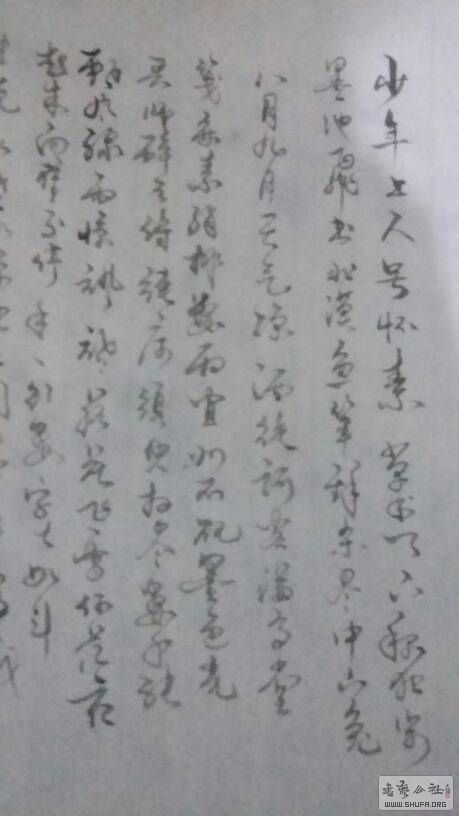 少年上人号怀素草书天下称独步
墨池飞出北溟鱼笔锋杀尽中山兔
八月九月天气凉酒徒词客满高堂
笺麻素绢排数厢宣州石砚墨色光
吾师醉后倚绳床须臾扫尽数千张
飘风骤雨惊飒飒落花飞雪何茫茫
起来向壁不停手一行数字大如斗
书艺公社
WWW.SHUFA.ORG